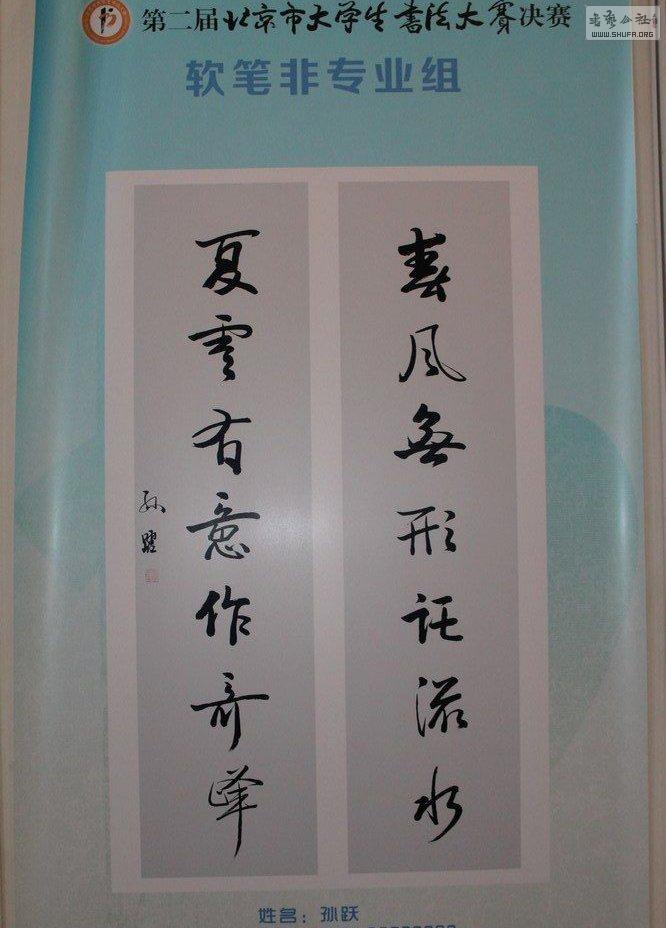 第二届北京市大学生書法大赛决赛
書藝公社
WWW.SHUFA.ORG
软笔非专业组
春风無形託水
夏雲有意作奇峯
孙躍
姓名：孙跃